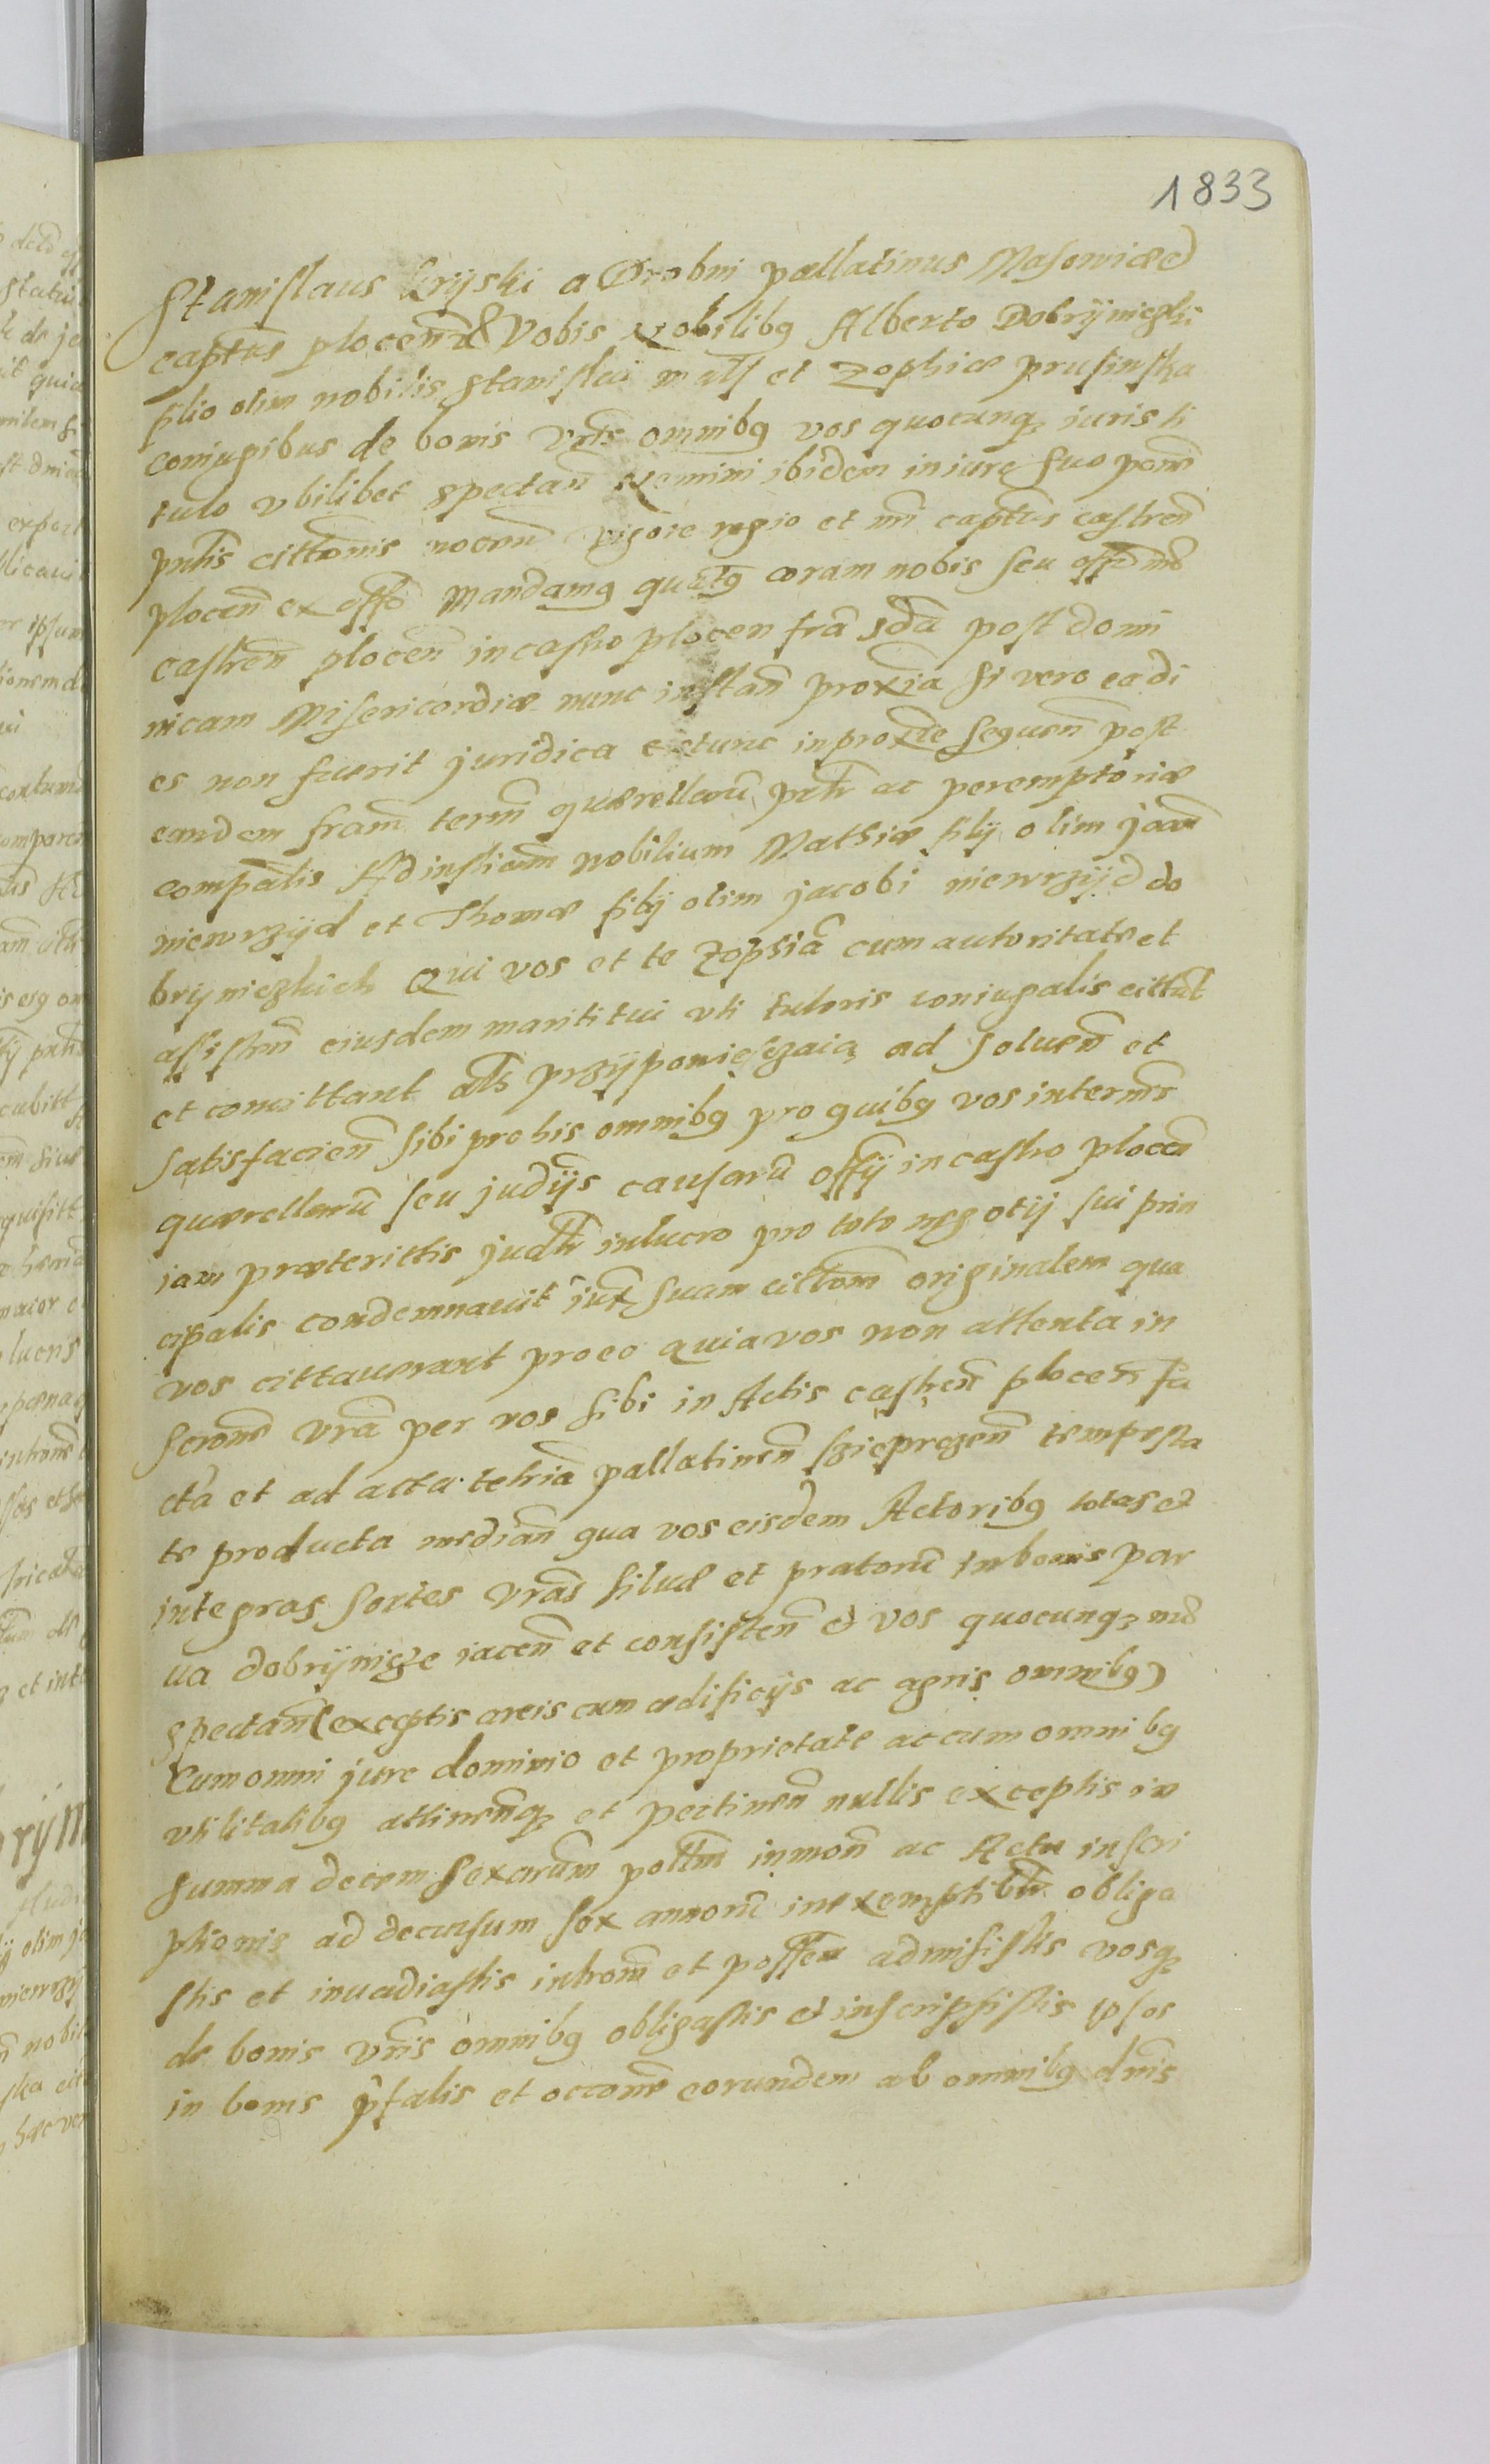 1833
Stanislaus Kryski a Drobni pallatinus Masoviæ et
captūs plocēn & Vobis Nobilibg Alberto Dobryniezki
filio olim nobilis Stanislai et Zophiæ prusinska
coniugibus de bonis vrīs omnibg vos quocunqz iuris ti
tulo vbilibet spectan̄ Nemini ibidem in iure suo pon̄
pn̄tis cittōnis nocen̄ vigore regio et mn̄ captūs castren̄
plocen̄ ex offō Mandamg quatg coram nobis seu offō mō
castren̄ plocen̄ in castro plocen fr̄a sdā post domi
nicam Misericordiæ nunc instan̄ proxīa si vero ea di
es non fuerit juridica extunc in proxīe sequen̄ post
eandem fram̄ term̄ quærellarū pn̄tr ac peremptoriæ
compātis Ad instiām nobilium Mathiæ filij olim joan̄
niewrzijd et Thomæ filij olim jacobi niewrzijd do
brijniezkich Qui vos et te Zophiā cum autoritate et
assisten̄ eiusdem mariti tui vti tutoris coniugalis cittan̄t
et convittant āts przijpowieszaią ad soluen̄ et
satisfacien̄ sibi pro his omnibg pro quibg vos in term̄s
quærellarū seu judijs causarū offij in castro plocen̄
iam præterittis judtr in lucro pro toto negotij sui prin
cipalis condemnauit iuxt suam cittōm originalem qua
vos cittauerant pro eo quia vos non attenta in
scrōne vrā per vos sibi in Actis castren̄ plocen̄ fa
cta et ad acta terriā pallatinen̄ szieprezen̄ tempesta
te producta median̄ qua vos eisdem Actoribg totas et
integras sortes vrās siluæ et pratorū in bonis par
ua dobrijnize iacen̄ et consisten̄ & vos quocunqz mō
spectan̄ (exceptis areis cum ædificijs ac agris omnibg)
Cum omni jure dominio et proprietate ac cum omnibg
vtilitatibg attinen̄qz et pertinen̄ nullis exceptis in
summa decem sexarum̄ poll̄m in mon̄ ac Actu inscri
ptionis ad decursum sex annorū inexemptibtr obliga
stis et invadiastis introm̄ et possen̄ admisistis vosqz
de bonis vrīs omnibg obligastis et inscripsistis ipsos
in bonis p̄fatis et occone eorundem ab omnibg dn̄is